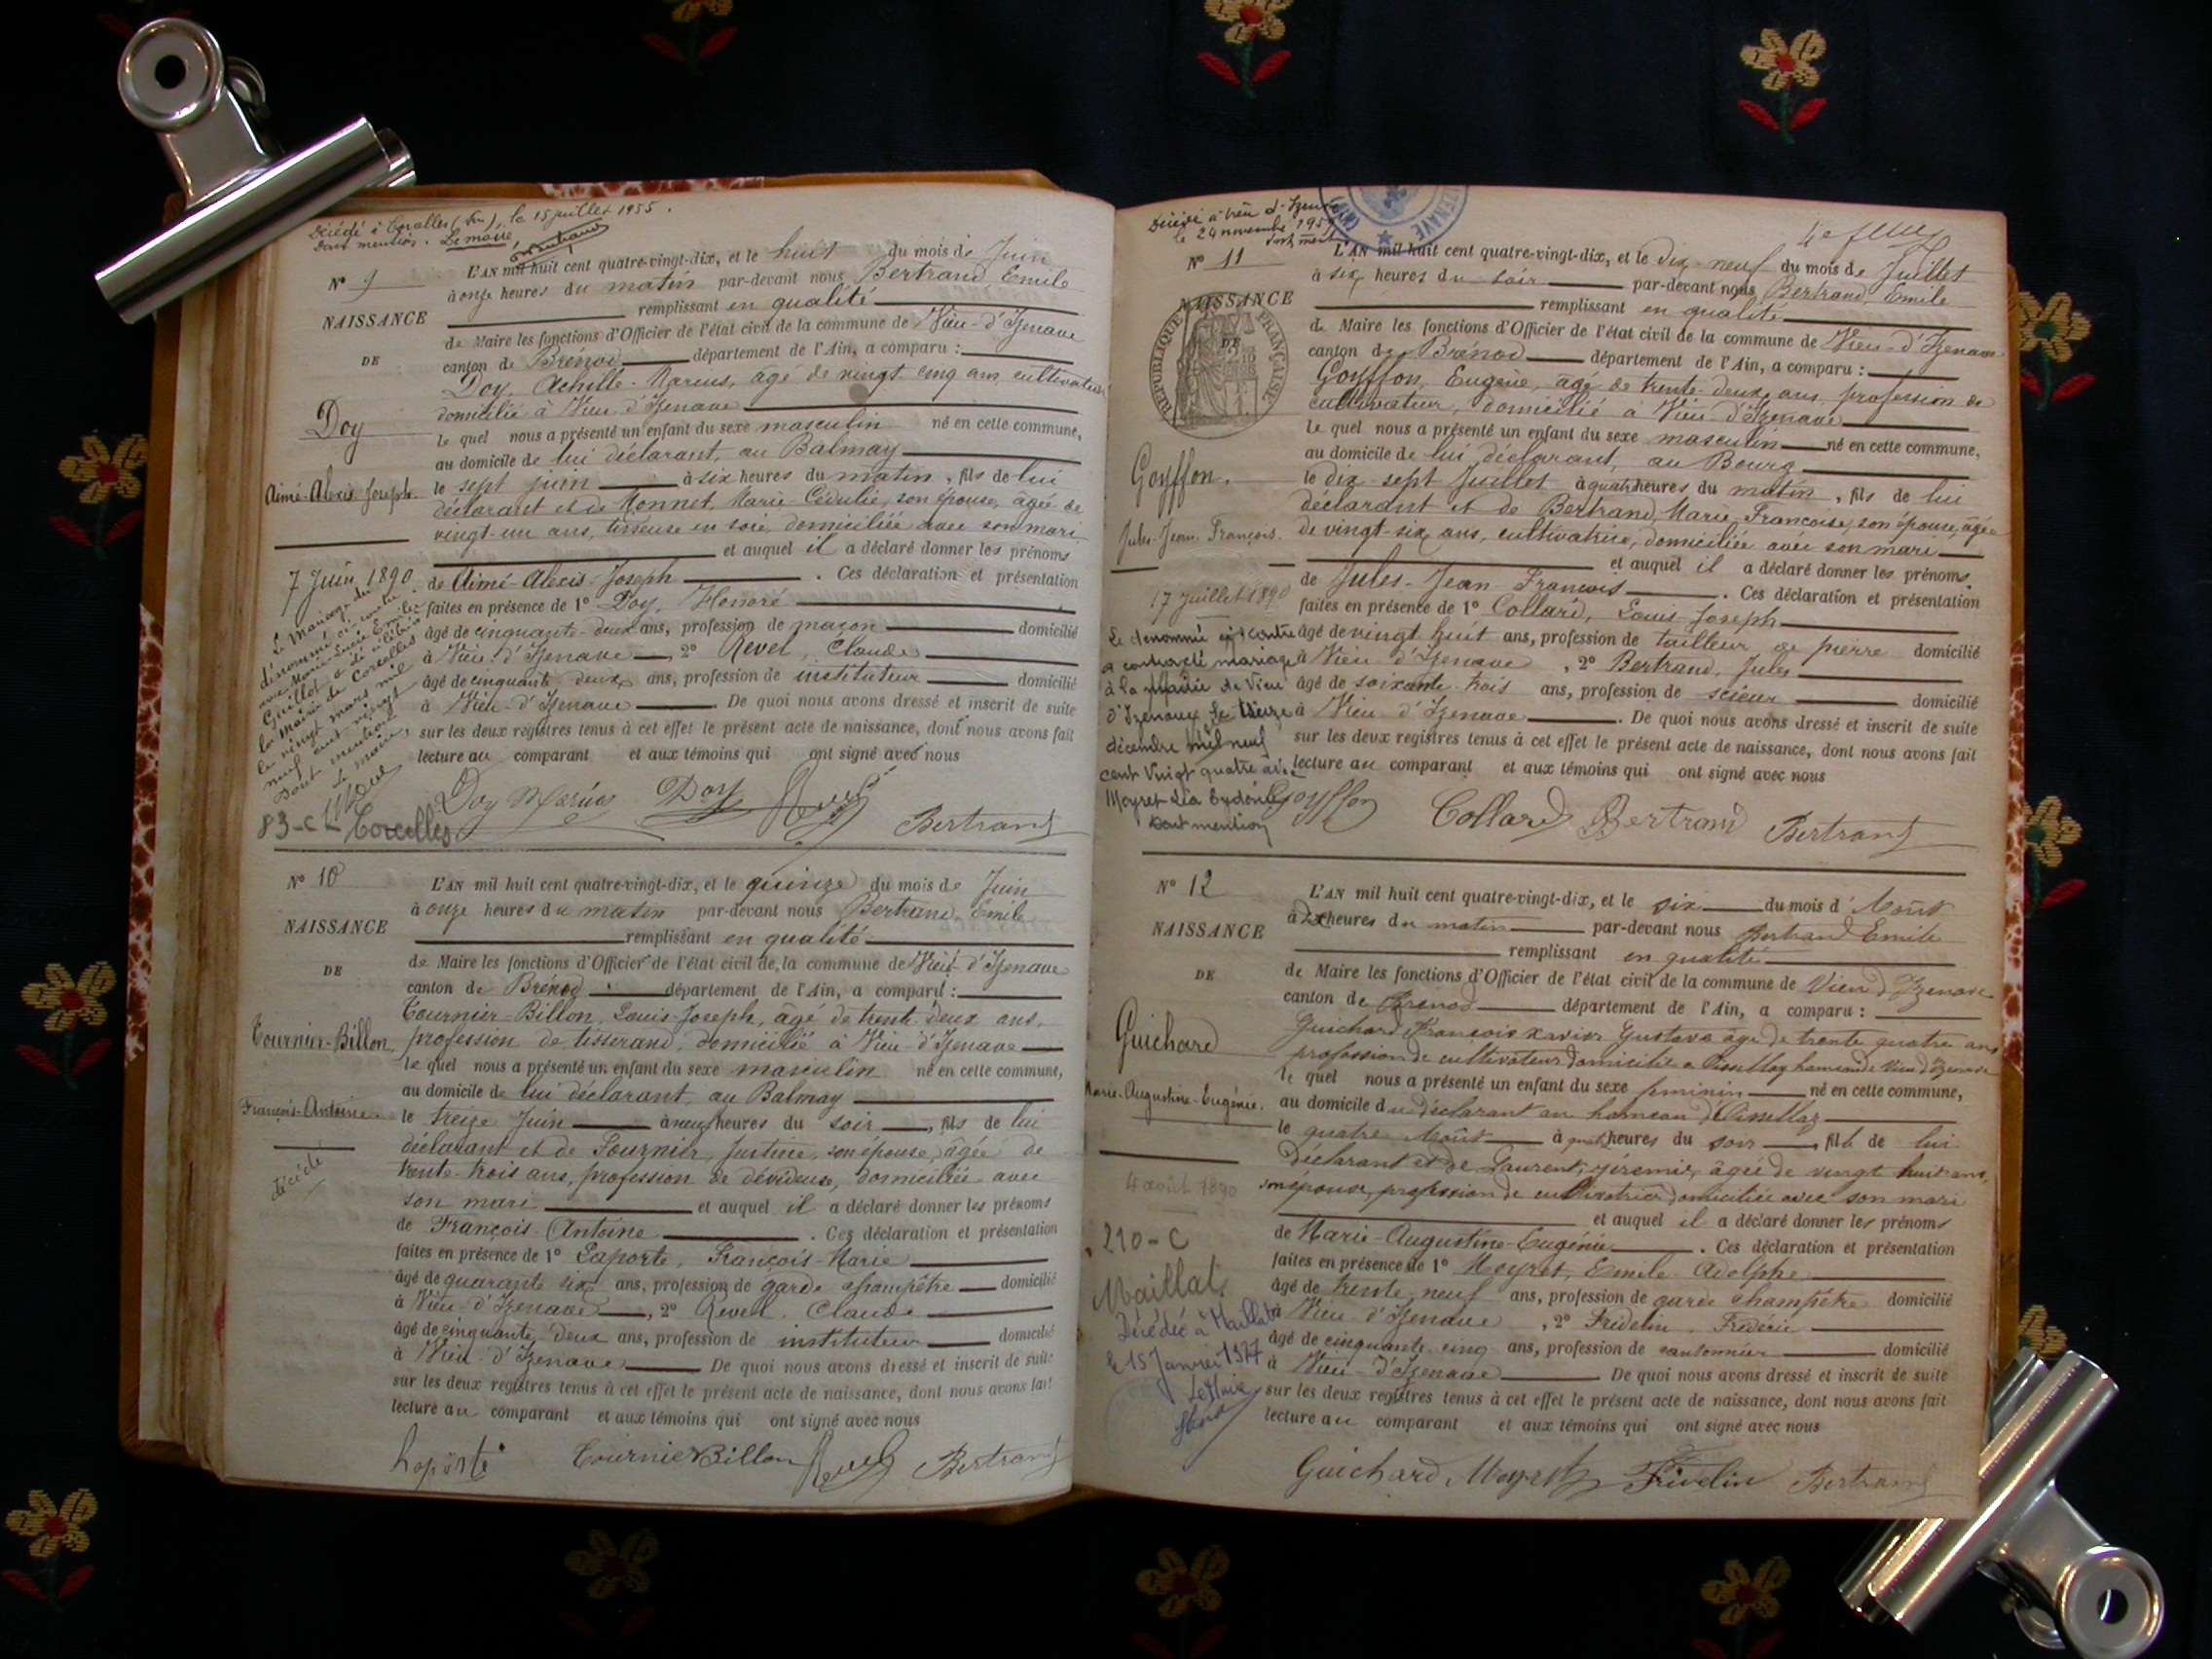 Décédé à Corcelles (Ain), le 15 juillet 1955.
Dont mention. Le maire,
N° 9
NAISSANCE
DE
Doy
Aimé-Alexis-Joseph.
7 Juin 1890
Le Mariage du
dénommé ci-contre
avec Marie-Lucie Emilie
Guillot a été célébré
la Mairie de Corcelles
le vingt mars mil
neuf cent vingt
Dont mention
Le maire,
83-c L Corcelles
L'AN mil huit cent quatre-vingt-dix, et le huit du mois de Juin
à onze heures du matin par-devant nous Bertrand Emile
remplissant en qualité
de Maire les fonctions d'Officier de l'état civil de la commune de Vieu-d'Izenave
canton de Brénod département de l'Ain, a comparu :
Doy, Achille-Marius, âgé de vingt-cinq ans, cultivateur
domicilié à Vieu-d'Izenave
le quel nous a présenté un enfant du sexe masculin né en cette commune,
au domicile de lui déclarant, au Balmay
le sept juin à six heures du matin, fils de lui
déclarant et de Monnet, Marie-Cédulie, son épouse, âgée de
vingt-un ans, tisseuse en soie, domiciliée avec son mari
et auquel il a déclaré donner les prénoms
de Aimé-Alexis-Joseph. Ces déclaration et présentation
faites en présence de 1° Doy, Honoré
âgé de cinquante-deux ans, profession de maçon domicilié
à Vieu-d'Izenave, 2° Revel, Claude
âgé de cinquante deux ans, profession de instituteur domicilié
à Vieu-d'Izenave De quoi nous avons dressé et inscrit de suite
sur les deux registres tenus à cet effet le présent acte de naissance, dont nous avons fait
lecture au comparant et aux témoins qui ont signé avec nous
Doy Marius Doy Revel Bertrand
N° 10
NAISSANCE
DE
Tournier-Billon
François-Antoine.
décédé
L'AN mil huit cent quatre-vingt-dix, et le quinze du mois de Juin
à onze heures du matin par-devant nous Bertrand, Emile
remplissant en qualité
de Maire les fonctions d'Officier de l'état civil de la commune de Vieu-d'Izenave
canton de Brénod département de l'Ain, a comparu :
Tournier-Billon, Louis-Joseph, âgé de trente-deux ans,
profession de tisserand, domicilié à Vieu-d'Izenave
le quel nous a présenté un enfant du sexe masculin né en cette commune,
au domicile de lui déclarant, au Balmay
le treize Juin à neuf heures du soir, fils de lui
déclarant et de Tournier, Justine, son épouse, âgée de
trente-trois ans, profession de dévideuse, domiciliée avec
son mari et auquel il a déclaré donner les prénoms
de François-Antoine. Ces déclaration et présentation
faites en présence de 1° Laporte, François-Marie
âgé de quarante six ans, profession de garde champêtre domicilié
à Vieu-d'Izenave, 2° Revel, Claude
âgé de cinquante deux ans, profession de instituteur domicilié
à Vieu-d'Izenave De quoi nous avons dressé et inscrit de suite
sur les deux registres tenus à cet effet le présent acte de naissance, dont nous avons fait
lecture au comparant et aux témoins qui ont signé avec nous
Laporte Tournier Billon Revel Bertrand
Décédé à Vieu d'Izenave
le 24 novembre 195
dont ment
N° 11
NAISSANCE
DE
RÉPUBLIQUE FRANÇAISE
Goyffon.
Jules-Jean-François.
17 Juillet 1890
Le dénommé ci-contre
a contracté mariage
à la mairie de Vieu
d'Izenave le treize
décembre mil neuf
cent vingt quatre avec
Meyret Léa Sydonie
dont mention
L'AN mil huit cent quatre-vingt-dix, et le dix-neuf du mois de Juillet
à six heures du soir par-devant nous Bertrand, Emile
remplissant en qualité
de Maire les fonctions d'Officier de l'état civil de la commune de Vieu-d'Izenave
canton de Brénod département de l'Ain, a comparu :
Goyffon, Eugène, âgé de trente-deux ans, profession de
cultivateur, domicilié à Vieu-d'Izenave
le quel nous a présenté un enfant du sexe masculin né en cette commune,
au domicile de lui déclarant, au Bourg
le dix sept Juillet à quatre heures du matin, fils de lui
déclarant et de Bertrand, Marie-Françoise, son épouse, âgée
de vingt-six ans, cultivatrice, domiciliée avec son mari
et auquel il a déclaré donner les prénoms
de Jules-Jean-François. Ces déclaration et présentation
faites en présence de 1° Collard, Louis-Joseph
âgé de vingt huit ans, profession de tailleur de pierre domicilié
à Vieu d'Izenave, 2° Bertrand, Jules
âgé de soixante-trois ans, profession de scieur domicilié
à Vieu-d'Izenave. De quoi nous avons dressé et inscrit de suite
sur les deux registres tenus à cet effet le présent acte de naissance, dont nous avons fait
lecture au comparant et aux témoins qui ont signé avec nous
Goyffon Collard Bertrand Bertrand
N° 12
NAISSANCE
DE
Guichard
Marie-Augustine-Eugénie.
4 août 1890
210-C
Maillat
Décédée à Maillat
le 15 Janvier 1977
Le Maire
L'AN mil huit cent quatre-vingt-dix, et le six du mois d'Août
à dix heures du matin par-devant nous Bertrand Emile
remplissant en qualité
de Maire les fonctions d'Officier de l'état civil de la commune de Vieu d'Izenave
canton de Brenod département de l'Ain, a comparu :
Guichard François Xavier Gustave âgé de trente quatre ans
profession de cultivateur domicilié à hameau de Vieu d'Izenave
le quel nous a présenté un enfant du sexe féminin né en cette commune,
au domicile du déclarant au hameau
le quatre Août à quatre heures du soir, fille de lui
déclarant et de Laurent, Jéremie, âgée de vingt huit ans,
son épouse, profession de cultivatrice domiciliée avec son mari
et auquel il a déclaré donner les prénoms
de Marie-Augustine-Eugénie. Ces déclaration et présentation
faites en présence de 1° Meyret, Emile-Adolphe
âgé de trente neuf ans, profession de garde champêtre domicilié
à Vieu d'Izenave, 2° Fridelin, Frédéric
âgé de cinquante-cinq ans, profession de cantonnier domicilié
à Vieu-d'Izenave De quoi nous avons dressé et inscrit de suite
sur les deux registres tenus à cet effet le présent acte de naissance, dont nous avons fait
lecture au comparant et aux témoins qui ont signé avec nous
Guichard Meyret Fridelin Bertrand